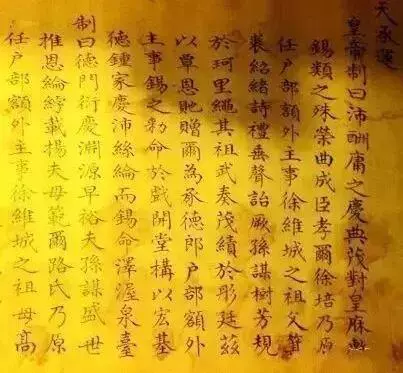 天承運
皇帝制曰沛酬庸之慶典茂對皇庥敷
錫類之殊榮曲成臣孝爾徐培乃原
任戶部額外主事徐維城之祖父箕
裘紹緒詩禮垂聲詒厥孫謀樹芳規
於珂里繩其祖武奏茂績於彤廷茲
以覃恩貤贈爾為承德郎戶部額外
主事錫之勅命於戲開堂構以宏基
德鍾家慶沛絲綸而錫命澤渥泉臺
制曰德門衍慶淵源早裕夫孫謀盛世
推恩綸綍載揚夫母範爾路氏乃原
任戶部額外主事徐維城之祖母高